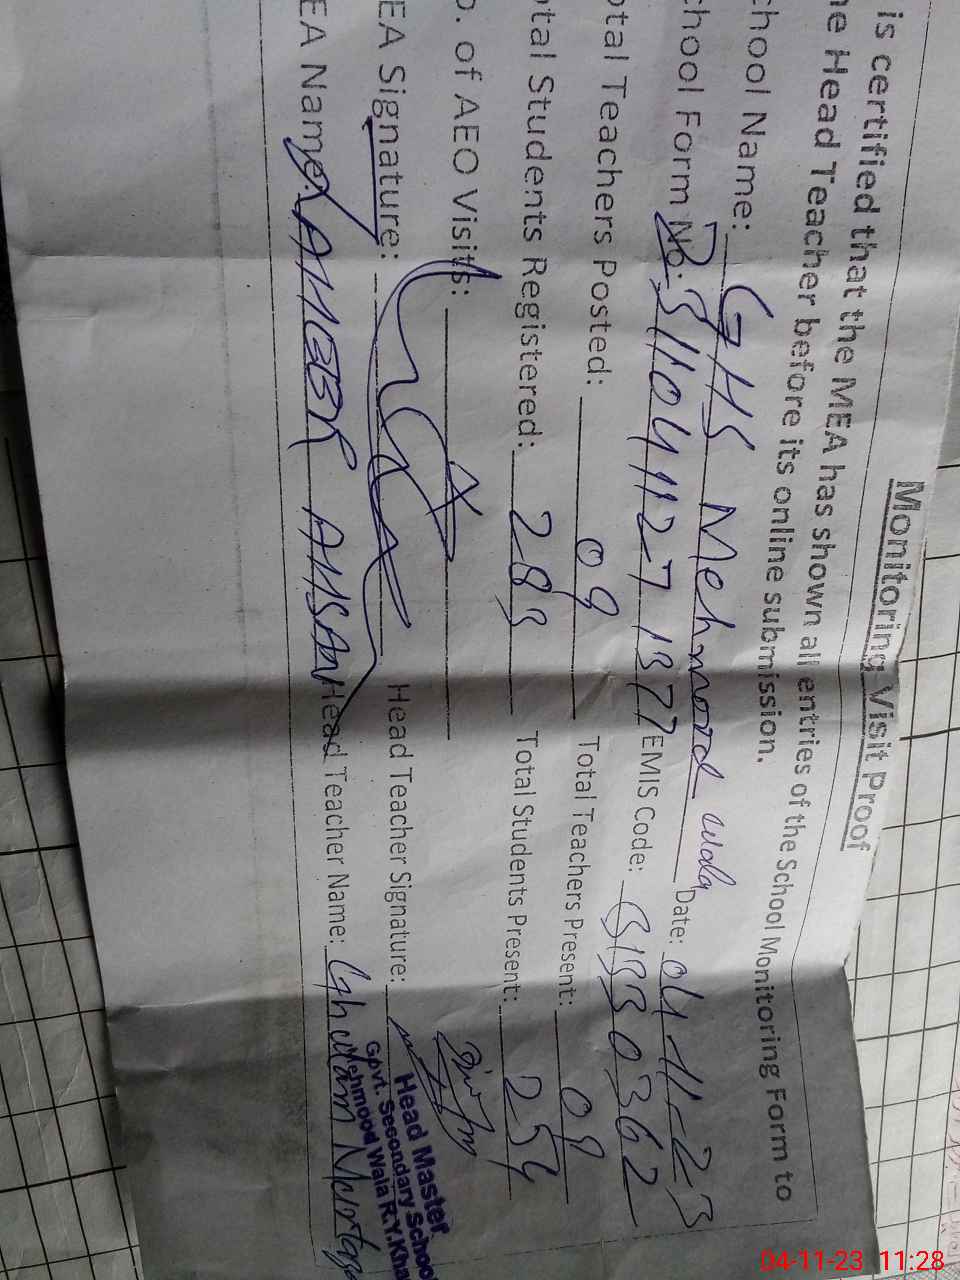 Monitoring Visit Proof
is certified that the MEA has shown all entries of the School Monitoring Form to
he Head Teacher before its online submission.
chool Name: GHS Mehmood wala Date: 04-11-23
chool Form No: EMIS Code: 31330362
otal Teachers Posted: 09 Total Teachers Present: 09
otal Students Registered: 283 Total Students Present: 254
o. of AEO Visits:
EA Signature: Head Teacher Signature:
EA Name: AMEER AHSAN Head Teacher Name: Ghulam Murtaza
Head Master
Govt. Secondary School
Mehmood Wala R.Y.Kha
04-11-23 11:28